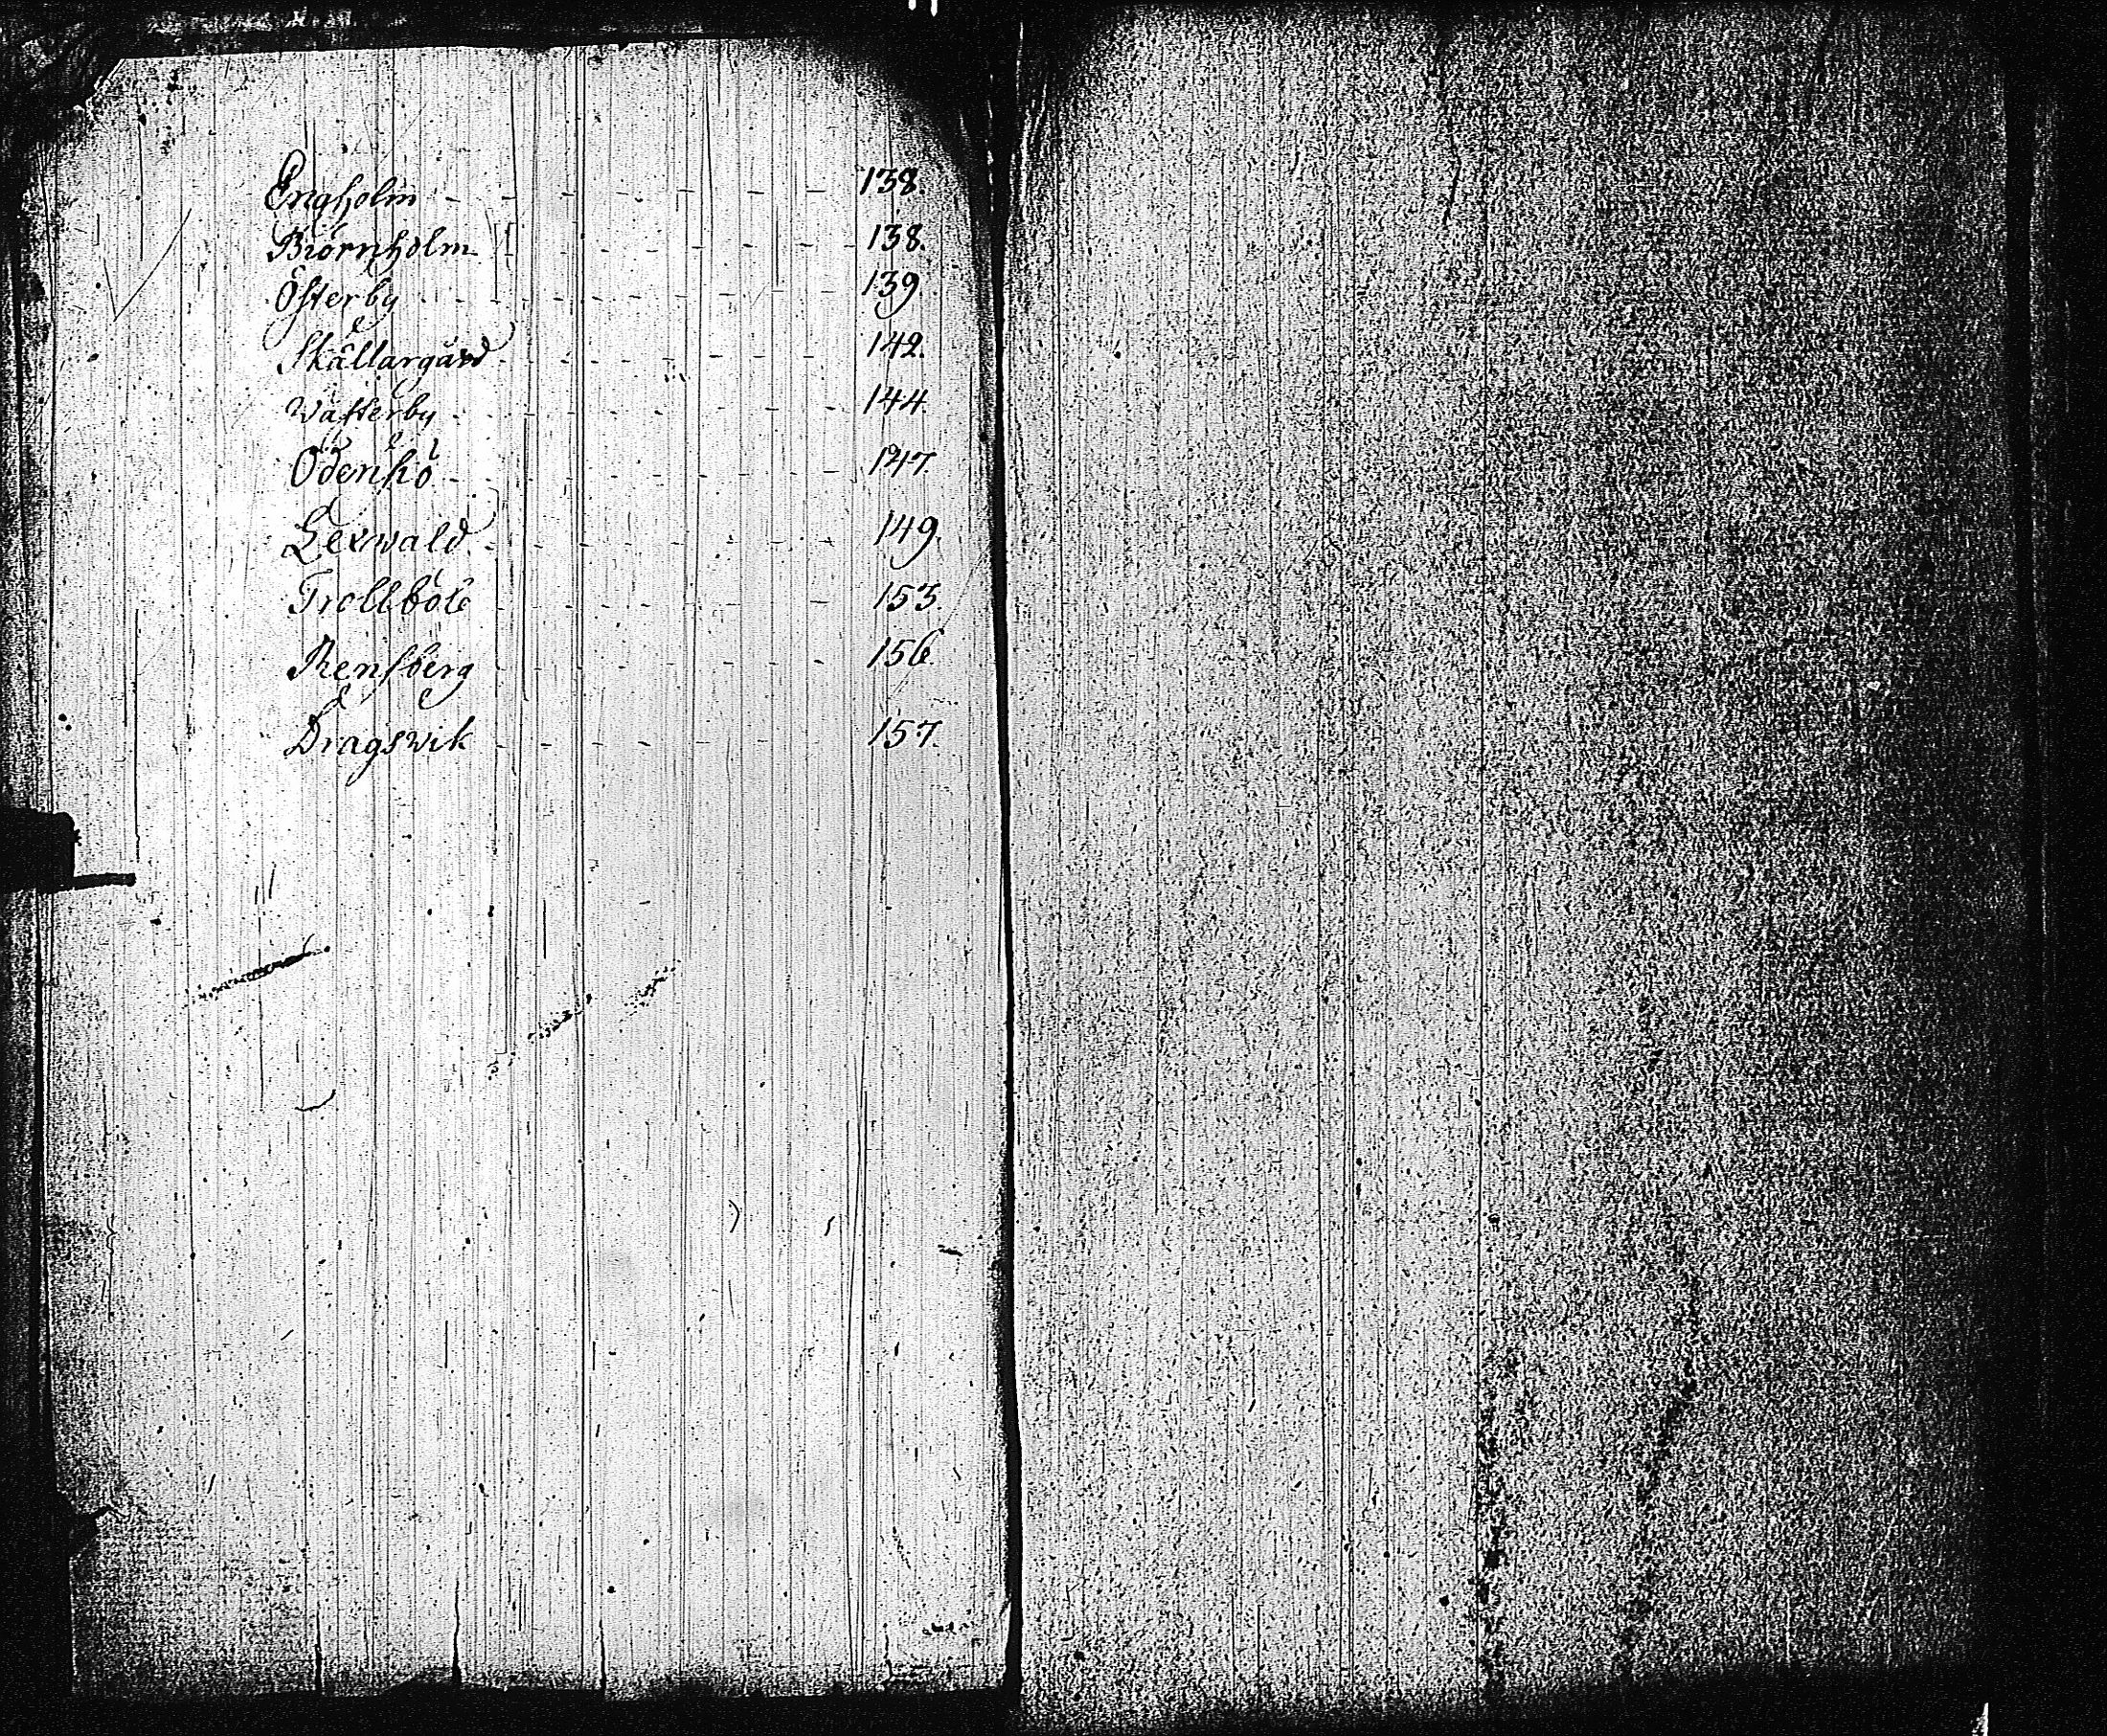 Engholm - - - - - - 138.
Biörnholm - - - - - 138.
Österby - - - - - - 139
Skållargård - - - - - 142.
Wästerby - - - - - - 144.
Odensö - - - - - - 147.
Lexwald - - - - - - 149.
Trollböle - - - - - - 153.
Rensberg - - - - - 156.
Dragswik - - - - - - 157.